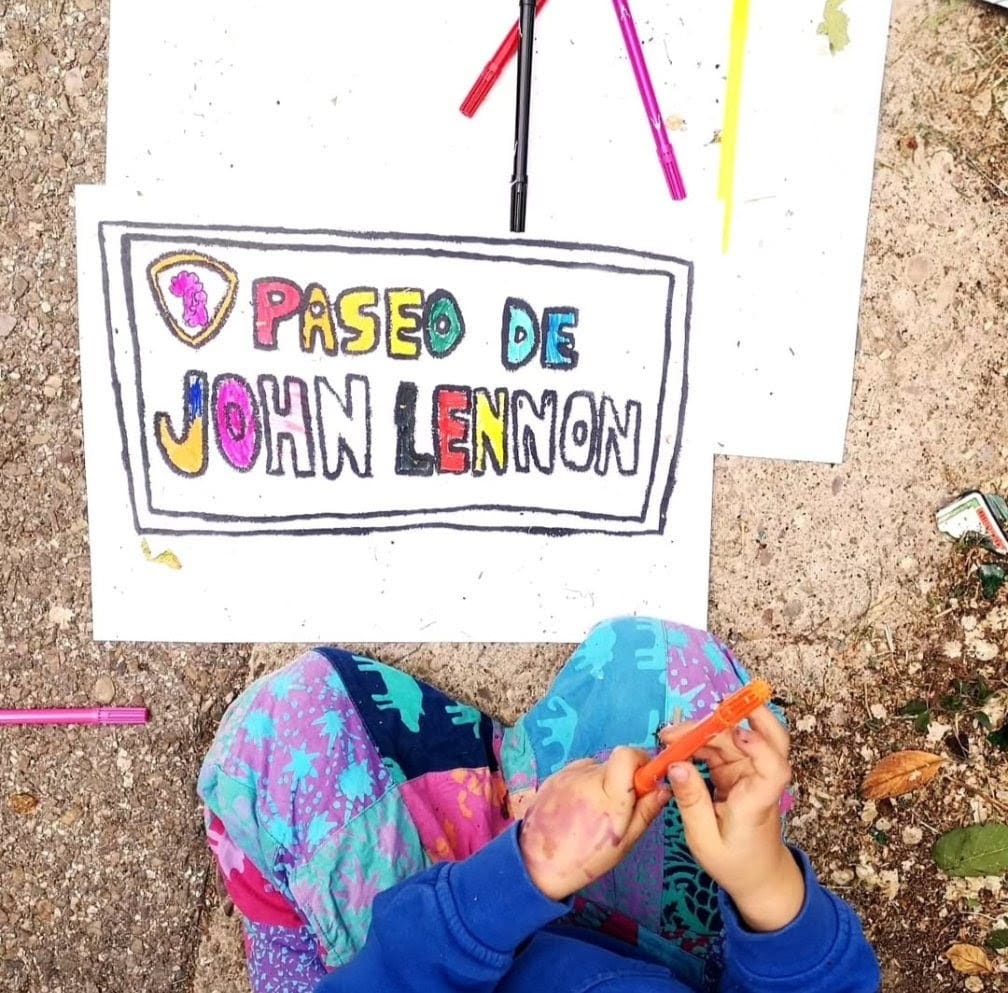 PASEO DE
JOHN LENNON